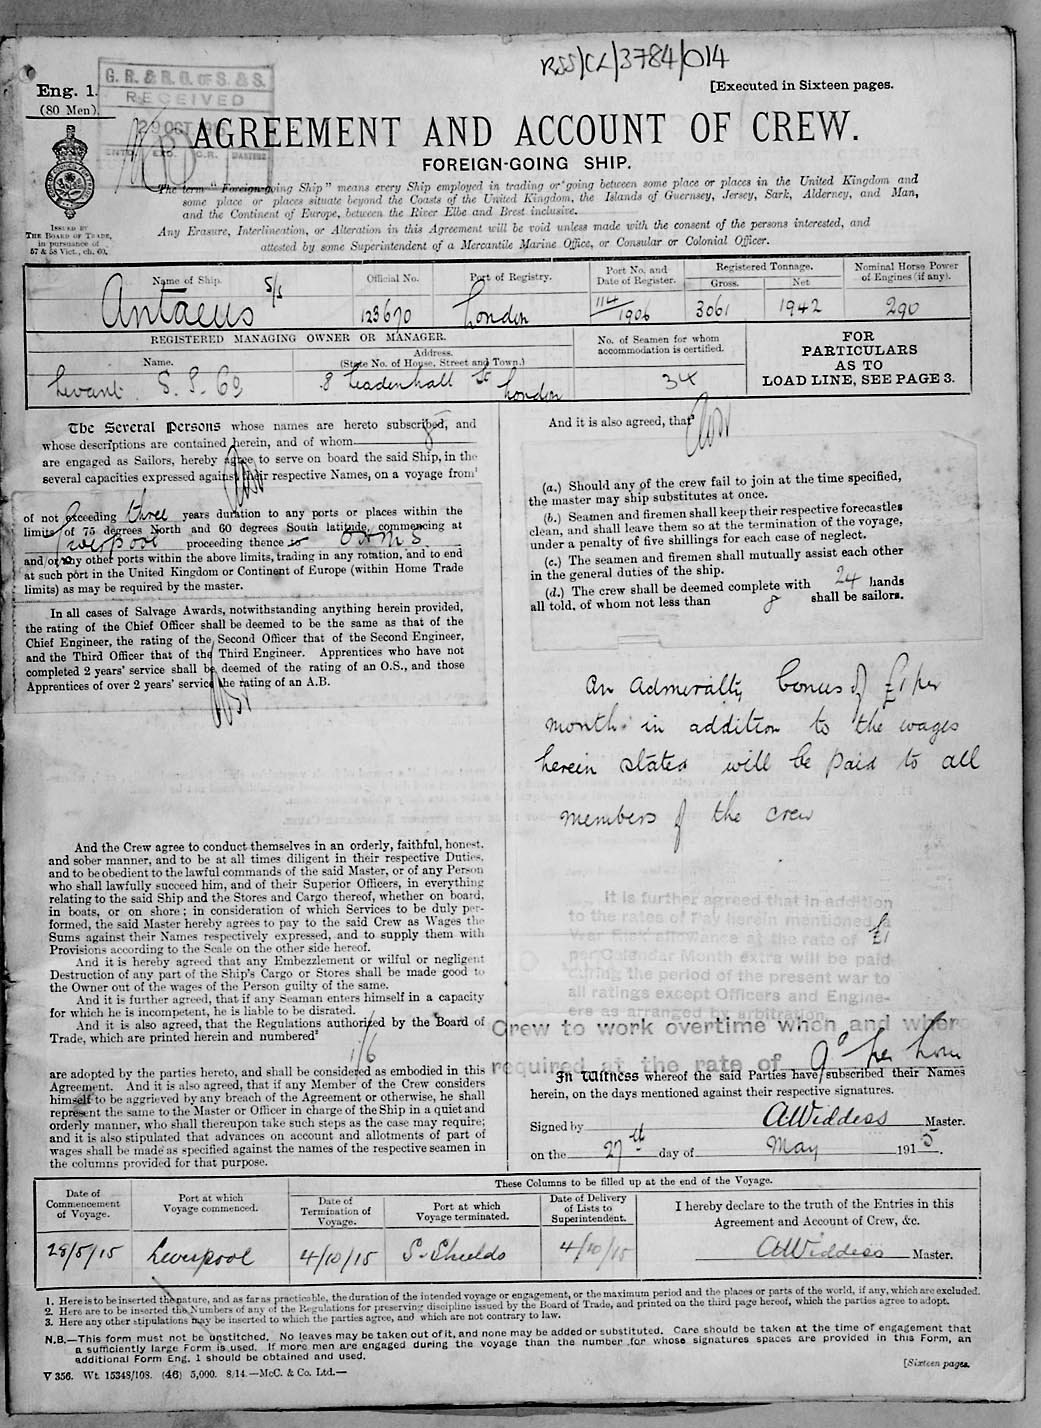 RSS/CL/3784/014
G. R. & R. O. OF S. & S.
RECEIVED
OCT
Eng. 1.
(80 Men).
[Executed in Sixteen pages.
AGREEMENT AND ACCOUNT OF CREW.
FOREIGN-GOING SHIP.
The term "Foreign-going Ship" means every Ship employed in trading or going between some place or places in the United Kingdom and
some place or places situate beyond the Coasts of the United Kingdom, the Islands of Guernsey, Jersey, Sark, Alderney, and Man,
and the Continent of Europe, between the River Elbe and Brest inclusive.
Any Erasure, Interlineation, or Alteration in this Agreement will be void unless made with the consent of the persons interested, and
attested by some Superintendent of a Mercantile Marine Office, or Consular or Colonial Officer.
ISSUED BY
THE BOARD OF TRADE,
in pursuance of
57 & 58 Vict., ch. 60.
Name of Ship. Official No. Port of Registry. Port No. and Date of Register. Registered Tonnage. Gross. Net Nominal Horse Power of Engines (if any).
Antaeus S/S 123670 London 114/1906 3061 1942 290
REGISTERED MANAGING OWNER OR MANAGER.
Name. Address. (State No. of House, Street and Town.) No. of Seamen for whom accommodation is certified.
Levant S. S. Co 8 Leadenhall St London 34
FOR
PARTICULARS
AS TO
LOAD LINE, SEE PAGE 3.
The Several Persons whose names are hereto subscribed, and
whose descriptions are contained herein, and of whom 8
are engaged as Sailors, hereby agree to serve on board the said Ship, in the
several capacities expressed against their respective Names, on a voyage from¹
of not exceeding three years duration to any ports or places within the
limits of 75 degrees North and 60 degrees South latitude, commencing at
Liverpool proceeding thence to
and/or any other ports within the above limits, trading in any rotation, and to end
at such port in the United Kingdom or Continent of Europe (within Home Trade
limits) as may be required by the master.
In all cases of Salvage Awards, notwithstanding anything herein provided,
the rating of the Chief Officer shall be deemed to be the same as that of the
Chief Engineer, the rating of the Second Officer that of the Second Engineer,
and the Third Officer that of the Third Engineer. Apprentices who have not
completed 2 years' service shall be deemed of the rating of an O.S., and those
Apprentices of over 2 years' service the rating of an A.B.
And the Crew agree to conduct themselves in an orderly, faithful, honest,
and sober manner, and to be at all times diligent in their respective Duties,
and to be obedient to the lawful commands of the said Master, or of any Person
who shall lawfully succeed him, and of their Superior Officers, in everything
relating to the said Ship and the Stores and Cargo thereof, whether on board,
in boats, or on shore; in consideration of which Services to be duly per-
formed, the said Master hereby agrees to pay to the said Crew as Wages the
Sums against their Names respectively expressed, and to supply them with
Provisions according to the Scale on the other side hereof.
And it is hereby agreed that any Embezzlement or wilful or negligent
Destruction of any part of the Ship's Cargo or Stores shall be made good to
the Owner out of the wages of the Person guilty of the same.
And it is further agreed, that if any Seaman enters himself in a capacity
for which he is incompetent, he is liable to be disrated.
And it is also agreed, that the Regulations authorized by the Board of
Trade, which are printed herein and numbered²
1/6
are adopted by the parties hereto, and shall be considered as embodied in this
Agreement. And it is also agreed, that if any Member of the Crew considers
himself to be aggrieved by any breach of the Agreement or otherwise, he shall
represent the same to the Master or Officer in charge of the Ship in a quiet and
orderly manner, who shall thereupon take such steps as the case may require;
and it is also stipulated that advances on account and allotments of part of
wages shall be made as specified against the names of the respective seamen in
the columns provided for that purpose.
And it is also agreed, that³
(a.) Should any of the crew fail to join at the time specified,
the master may ship substitutes at once.
(b.) Seamen and firemen shall keep their respective forecastles
clean, and shall leave them so at the termination of the voyage,
under a penalty of five shillings for each case of neglect.
(c.) The seamen and firemen shall mutually assist each other
in the general duties of the ship.
(d.) The crew shall be deemed complete with 24 hands
all told, of whom not less than 8 shall be sailors.
An Admiralty bonus of £1 per
month in addition to the wages
herein stated will be paid to all
members of the crew
It is further agreed that in addition
to the rates of Pay herein mentioned a
War Risk allowance at the rate of £1
per Calendar Month extra will be paid
during the period of the present war to
all ratings except Officers and Engine-
ers as arranged by arbitration.
Crew to work overtime when and where
required at the rate of 9d per hour
In Witness whereof the said Parties have subscribed their Names
herein, on the days mentioned against their respective signatures.
Signed by A Widdess Master.
on the 27th day of May 1915.
These Columns to be filled up at the end of the Voyage.
Date of Commencement of Voyage. Port at which Voyage commenced. Date of Termination of Voyage. Port at which Voyage terminated. Date of Delivery of Lists to Superintendent. I hereby declare to the truth of the Entries in this Agreement and Account of Crew, &c.
28/5/15 Liverpool 4/10/15 S. Shields 4/10/15 A Widdess Master.
1. Here is to be inserted the nature, and as far as practicable, the duration of the intended voyage or engagement, or the maximum period and the places or parts of the world, if any, which are excluded.
2. Here are to be inserted the Numbers of any of the Regulations for preserving discipline issued by the Board of Trade, and printed on the third page hereof, which the parties agree to adopt.
3. Here any other stipulations may be inserted to which the parties agree, and which are not contrary to law.
N.B.—This form must not be unstitched. No leaves may be taken out of it, and none may be added or substituted. Care should be taken at the time of engagement that
a sufficiently large Form is used. If more men are engaged during the voyage than the number for whose signatures spaces are provided in this Form, an
additional Form Eng. 1 should be obtained and used.
[Sixteen pages.
V 356. Wt. 15348/108. (46) 5,000. 8/14.—McC. & Co. Ltd.—